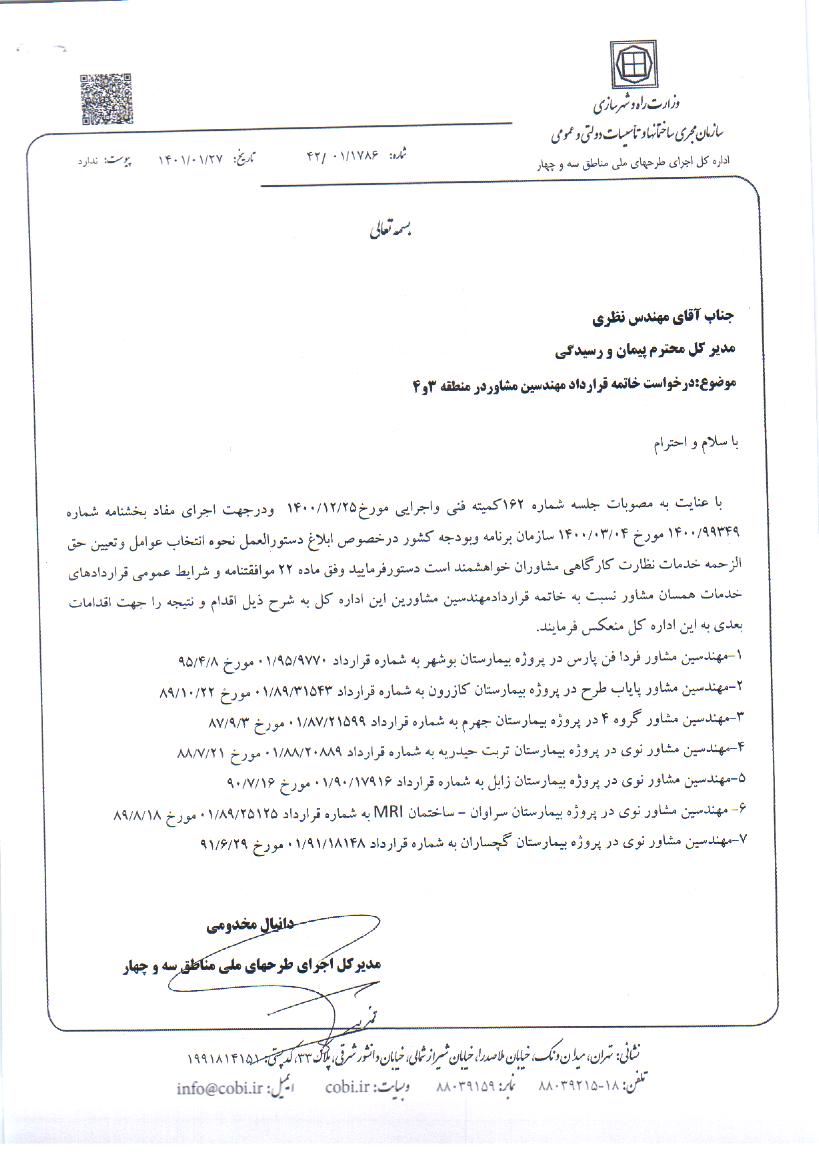 وزارت راه و شهرسازی
سازمان مجری ساختمانها و تأسیسات دولتی و عمومی
اداره کل اجرای طرحهای ملی مناطق سه و چهار
شماره: ۴۲/ ۰۱/۱۷۸۶ تاریخ: ۱۴۰۱/۰۱/۲۷ پیوست: ندارد
بسمه تعالی
جناب آقای مهندس نظری
مدیر کل محترم پیمان و رسیدگی
موضوع:درخواست خاتمه قرارداد مهندسین مشاوردر منطقه ۳و۴
با سلام و احترام
با عنایت به مصوبات جلسه شماره ۱۶۲کمیته فنی واجرایی مورخ۱۴۰۰/۱۲/۲۵ ودرجهت اجرای مفاد بخشنامه شماره
۱۴۰۰/۹۹۳۴۹ مورخ ۱۴۰۰/۰۳/۰۴ سازمان برنامه وبودجه کشور درخصوص ابلاغ دستورالعمل نحوه انتخاب عوامل وتعیین حق
الزحمه خدمات نظارت کارگاهی مشاوران خواهشمند است دستورفرمایید وفق ماده ۲۲ موافقتنامه و شرایط عمومی قراردادهای
خدمات همسان مشاور نسبت به خاتمه قراردادمهندسین مشاورین این اداره کل به شرح ذیل اقدام و نتیجه را جهت اقدامات
بعدی به این اداره کل منعکس فرمایند.
۱-مهندسین مشاور فردا فن پارس در پروژه بیمارستان بوشهر به شماره قرارداد ۰۱/۹۵/۹۷۷۰ مورخ ۹۵/۴/۸
۲-مهندسین مشاور پایاب طرح در پروژه بیمارستان کازرون به شماره قرارداد ۰۱/۸۹/۳۱۵۴۳ مورخ ۸۹/۱۰/۲۲
۳-مهندسین مشاور گروه ۴ در پروژه بیمارستان جهرم به شماره قرارداد ۰۱/۸۷/۲۱۵۹۹ مورخ ۸۷/۹/۳
۴-مهندسین مشاور نوی در پروژه بیمارستان تربت حیدریه به شماره قرارداد ۰۱/۸۸/۲۰۸۸۹ مورخ ۸۸/۷/۲۱
۵-مهندسین مشاور نوی در پروژه بیمارستان زابل به شماره قرارداد ۰۱/۹۰/۱۷۹۱۶ مورخ ۹۰/۷/۱۶
۶- مهندسین مشاور نوی در پروژه بیمارستان سراوان – ساختمان MRI به شماره قرارداد ۰۱/۸۹/۲۵۱۲۵ مورخ ۸۹/۸/۱۸
۷-مهندسین مشاور نوی در پروژه بیمارستان گچساران به شماره قرارداد ۰۱/۹۱/۱۸۱۴۸ مورخ ۹۱/۶/۲۹
دانیال مخدومی
مدیرکل اجرای طرحهای ملی مناطق سه و چهار
نشانی: تهران، میدان ونک، خیابان ملاصدرا، خیابان شیراز شمالی، خیابان دانشور شرقی، پلاک ۳۳، کد پستی: ۱۹۹۱۸۱۴۱۵۱
تلفن: ۱۸-۸۸۰۳۹۲۱۵ نمابر: ۸۸۰۳۹۱۵۹ وبسایت: cobi.ir ایمیل: info@cobi.ir